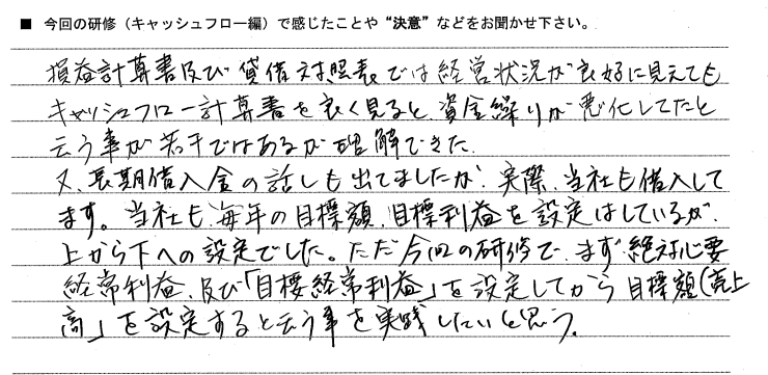 ■ 今回の研修（キャッシュフロー編）で感じたことや“決意”などをお聞かせ下さい。
損益計算書及び貸借対照表では経営状況が良好に見えても
キャッシュフロー計算書を良く見ると、資金繰りが悪化してたと
云う事が若干ではあるが理解できた。
又、長期借入金の話しも出てましたが、実際、当社も借入して
ます。当社も、毎年の目標額、目標利益を設定はしているが、
上から下への設定でした。ただ今回の研修で、まず絶対必要
経常利益、及び「目標経常利益」を設定してから目標額（売上
高」を設定すると云う事を実践したいと思う。